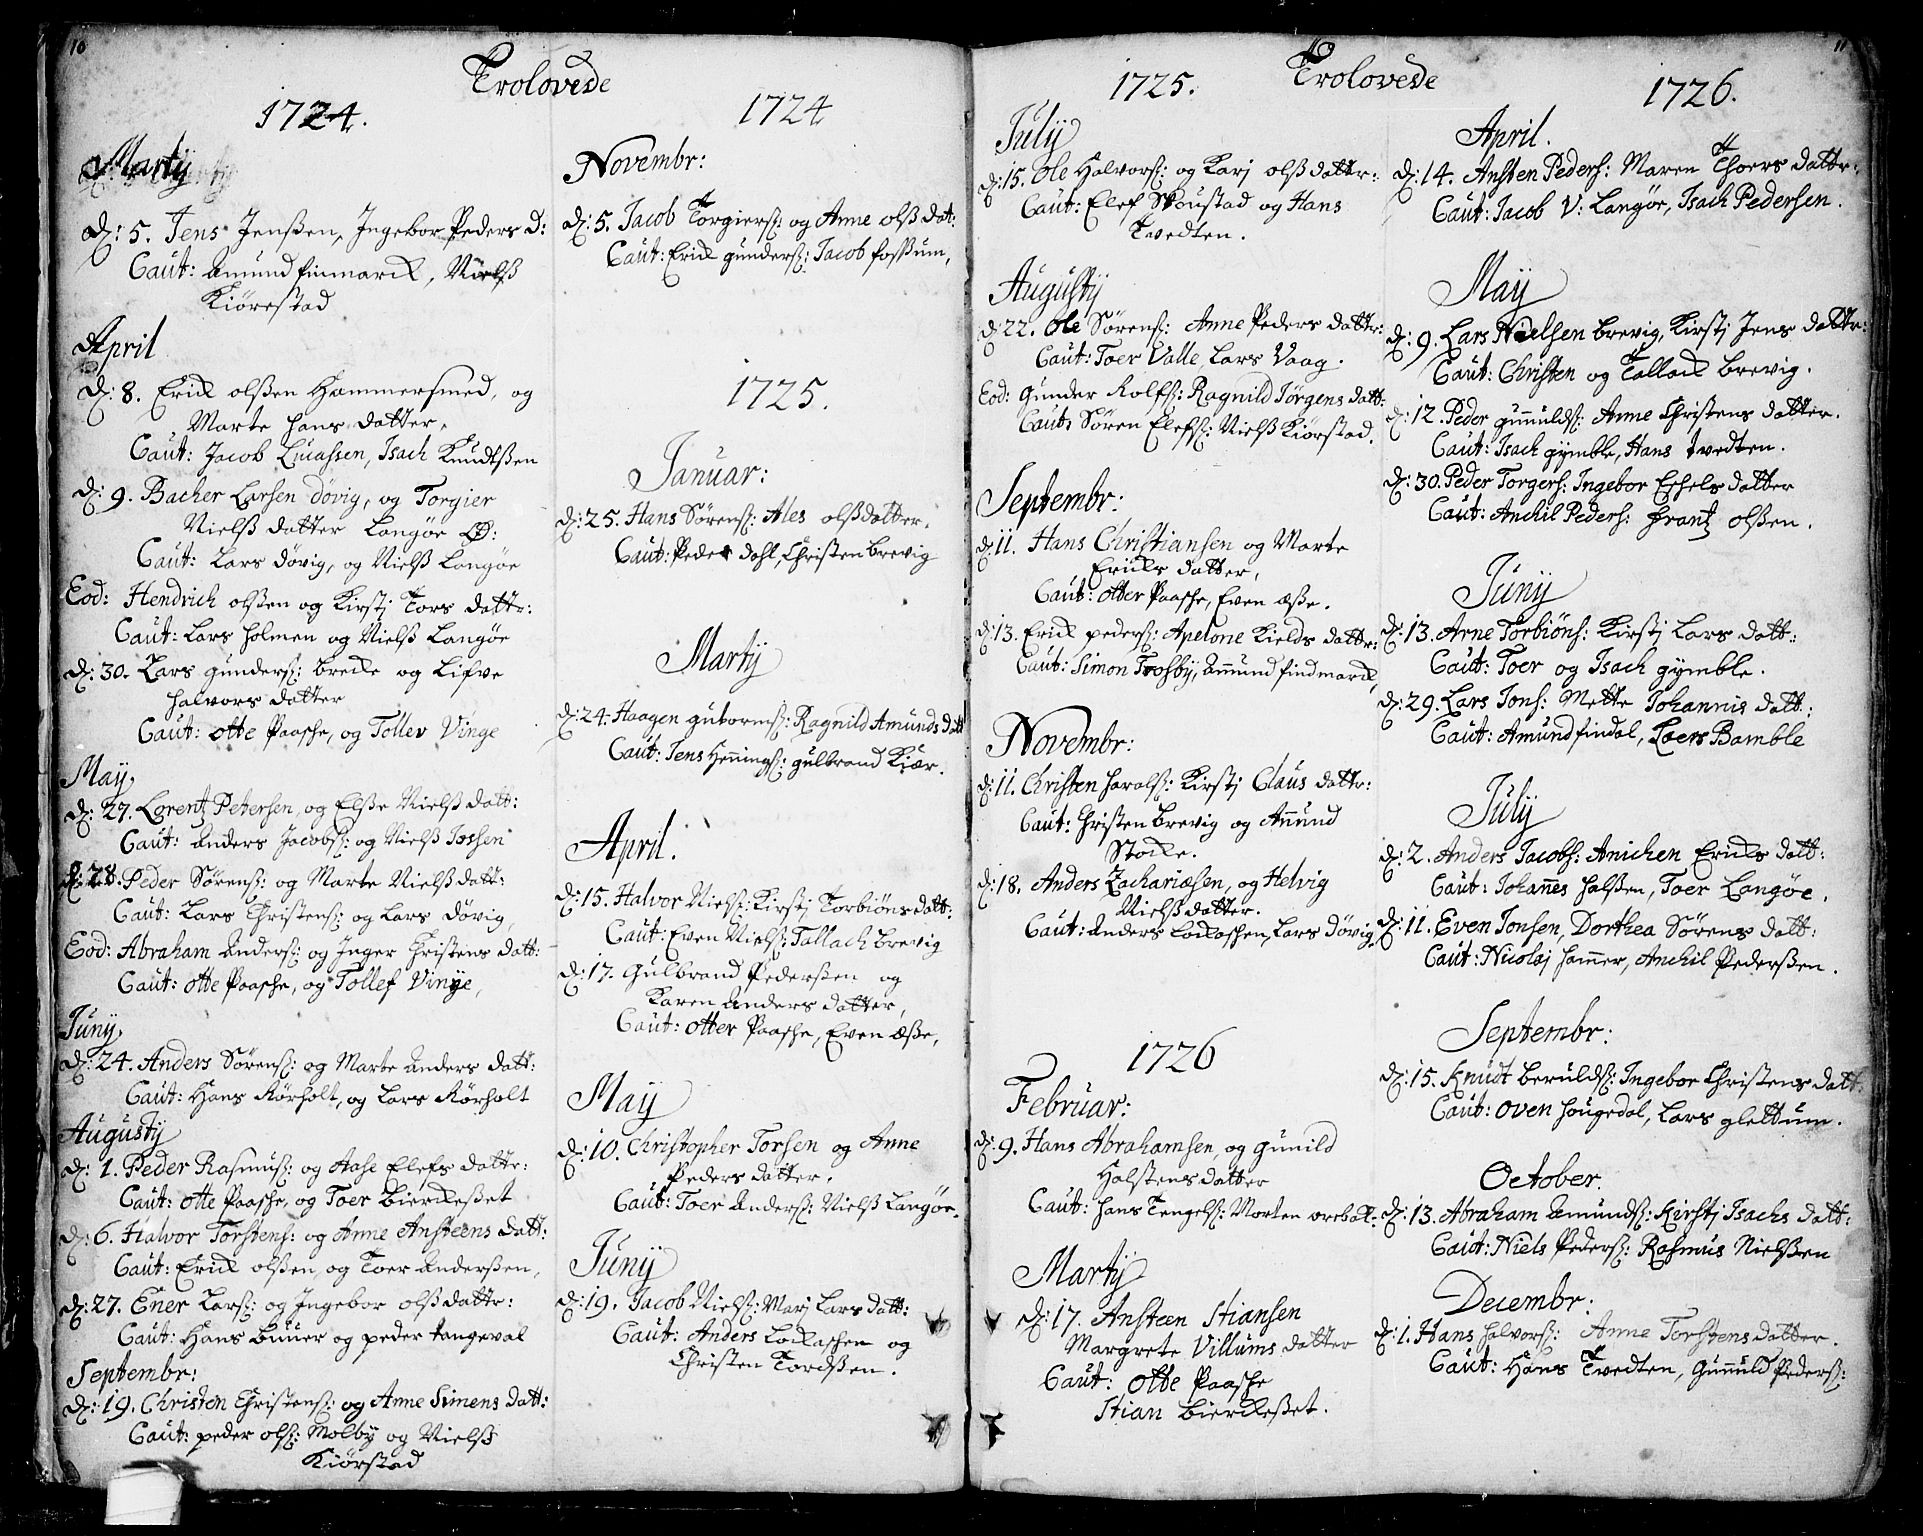 10
Trolovede
1724.
Martij
d: 5. Jens Jenßen, Ingebor Peders D:
Caut: Amund finmarck, Nielß
Kiørestad
April
d: 8. Erick olßen Hammersmed, og
Marte Hans datter,
Caut: Jacob Lucassen, Isach Knudtßen
d: 9. Bacher Larsen døvig, og Torgier
Nielß datter Langøe
Caut: Lars døvig, og Nielß Langøe
Eod: Hendrich olßen og Kirstj Tors datter:
Caut: Lars Holmen og Nielß Langøe
d: 30. Lars gunders: brecke og Lifve
Halvors datter
Caut: otte Paasche, og Tollev Vinge
May,
d: 27. Lorentz Petersen, og Elße Nielß datt:
Caut: Anders Jacobs: og Nielß Jossen
d: 28. Peder Sørens: og Marte Nielß datt:
Caut: Lars Christens: og Lars døvig,
Eod: Abraham Anders: og Inger Christens datt:
Caut: otte Paasche, og Tollef Vinge,
Juny,
d: 24. Anders Sørens: og Marte Anders datt:
Caut: Hans Rørholt, og Lars Rørholt
Augustij
d: 1. Peder Rasmus: og Aase Elefs datter:
Caut: otte Paasche, og Toer Bierckeßet
d: 6. Halvor Torstens: og Anne Ansteens datt:
Caut: Erick olßen, og Toer Anderßen,
d: 27. Ener Lars: og Ingebor olß datter:
Caut: Hans Buuer og peder tangeval
Septembr:
d: 19. Christen Christens: og Anne Simens datt:
Caut: peder ols: Molby og Nielß
Kiørstad
1724
Novembr:
d: 5. Jacob Torgiers: og Anne olß dat:
Caut: Erick gunders: Jacob foßum,
1725.
Januar:
d: 25. Hans Sørens: Ales olßdatter,
Caut: Peder dahl, Christen brevig
Martij
d: 24. Haagen gutorms: Ragnild Amunds datt
Caut: Jens Hennings: gulbrand Kiær.
April.
d: 15. Halvor Niels: Kirstj Torbiøns datt:
Caut: Even Niels: Tallach brevig
d: 17. Gulbrand Pederßen og
Karen Anders datter,
Caut: otter Paasche, Even æße,
May
d: 10. Christopher Torsen og Anne
Peders datter.
Caut: Toer Anders: Nielß Langøe.
Juny
d: 19. Jacob Niels: Marj Lars datt:
Caut: Anders Lockaschen og
Christen Tordßen.
11
Trolovede
1725.
July
d: 15. Ole Halvors: og Karj olß datter:
Caut: Elef Skoustad og Hans
Tvedten.
Augustij
d: 22. Ole Sørens: Anne Peders datter:
Caut: Toer Valle, Lars Vaag.
Eod: Gunder Rolfs: Ragnild Jørgens datt:
Caut: Søren Elefs: Nielß Kiørstad.
Septembr:
d: 11. Hans Christiansen og Marte
Ericks datter,
Caut: otter Paasche, Even æße.
d: 13. Erick peders: Apelone Kields datter:
Caut: Simon Trosby, Amund findmarck,
Novembr:
d: 11. Christen Harals: Kirstj Claus datter:
Caut: Christen brevig og Amund
Stocke.
d: 18. Anders Zachariæsen, og Helvig
Nielß datter.
Caut: Anders Lockaschen, Lars døvig,
1726
Februar:
d: 9. Hans Abrahamsen, og gunild
Halstens datter
Caut: Hans Tengels: Morten orebak:
Martij
d: 17. Ansteen Stiansen
Margrete Villums datter
Caut: otte Paasche
Stian Bierckeßet.
1726.
April.
d: 14. Ansten Peders: Maren Thoers dattr:
Caut: Jacob V: Langøe, Isach Pedersen.
May
d: 9. Lars Nielsen brevig, Kirstj Jens datter:
Caut: Christen og Tallack brevig.
d: 12. Peder gunulds: Anne Christens datter.
Caut: Isach gymble, Hans tvedten.
d: 30. Peder Torgers: Ingebor Eschels datter
Caut: Anchil Peders: frantz olßen.
Juny
d: 13. Arne Torbiøns: Kirstj Lars datt:
Caut: Toer og Isach gymble.
d: 29. Lars Jons: Mette Johannis datt:
Caut: Amund findal, Loers Bamble
July
d: 2. Anders Jacobs: Anichen Ericks datt:
Caut: Johannes Halßen, Toer Langøe,
d: 11. Even Jonsen, Dorthea Sørens datt:
Caut: Nicolaj Hammer, Anchil Pederßen.
Septembr:
d: 15. Knudt beruldS: Ingebor Christens datt:
Caut: oven Hougedal, Lars glettum.
October.
d: 13. Abraham Amunds: Kirstj Isachs datt:
Caut: Niels Peders: Rasmus Nielßen
Decembr:
d: 1. Hans Halvors: Anne Torstens datter.
Caut: Hans Tvedten, Gunnuld Peders: